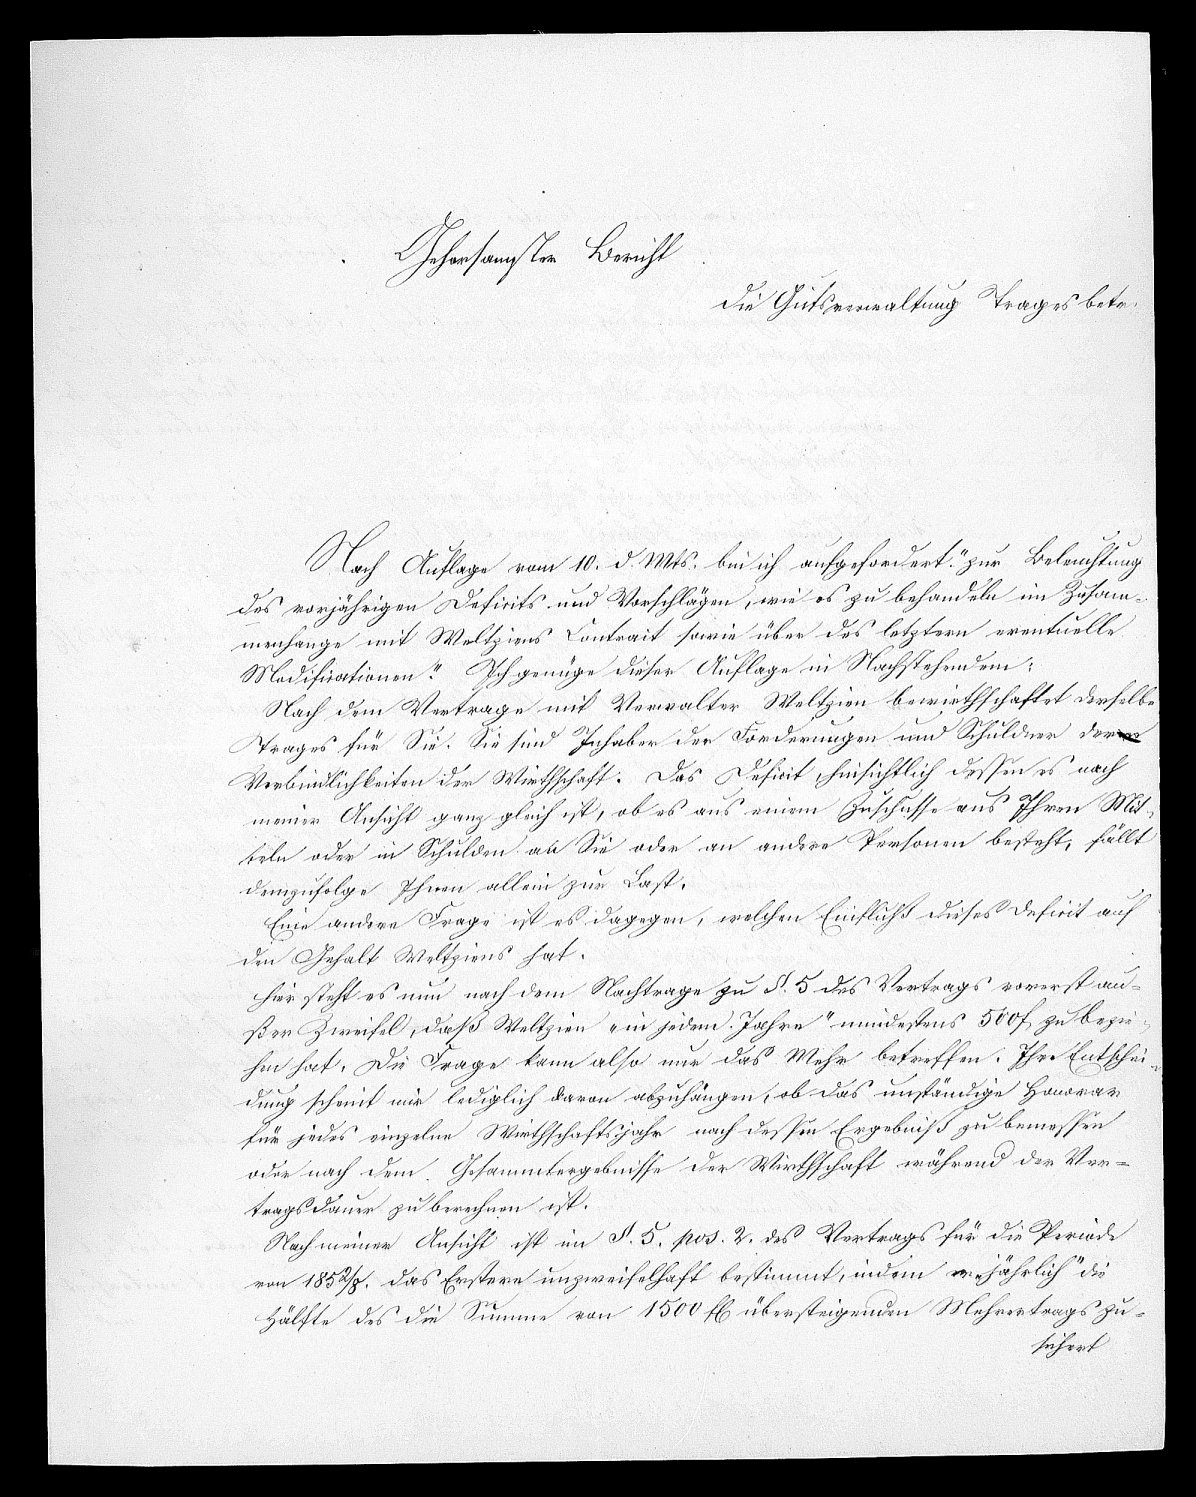 Gehorsamster Bericht
die Gutsverwaltung Trages betr.
Nach Auflage vom 10. d. Mts. bin ich aufgefordert "zur Beleuchtung
des vorjährigen Deficits und Vorschlägen, wie es zu behandeln im Zusam-
menhange mit Weltziens Contract sowie über des letztern eventuelle
Modificationen". Ich genüge dieser Auflage in Nachstehendem:
Nach dem Vertrage mit Verwalter Weltzien bewirthschaftet derselbe
Trages für Sie. Sie sind Inhaber der Forderungen und Schuldner der
Verbindlichkeiten der Wirthschaft. Das Deficit, hinsichtlich dessen es nach
meiner Ansicht ganz gleich ist, ob es aus einem Zuschusse aus Ihren Mit-
teln oder in Schulden an Sie oder an andere Personen besteht, fällt
demzufolge Ihnen allein zur Last.
Eine andere Frage ist es dagegen, welchen Einfluß dieses Deficit auf
den Gehalt Weltziens hat.
Hier steht es nun nach dem Nachtrage zu §. 5 des Vertrags vorerst au-
ßer Zweifel, daß Weltzien "in jedem Jahre" mindestens 500 f zu bezie-
hen hat. Die Frage kann also nur das Mehr betreffen. Ihre Entschei-
dung scheint mir lediglich davon abzuhängen, ob das unständige Honorar
für jedes einzelne Wirthschaftsjahr nach dessen Ergebniß zu bemessen
oder nach dem Gesammtergebnisse der Wirthschaft während der Ver-
tragsdauer zu berechnen ist.
Nach meiner Ansicht ist im §. 5. pos. 2. des Vertrags für die Periode
von 185 das Erstere unzweifelhaft bestimmt, indem er "jährlich" die
Hälfte des die Summe von 1500 fl übersteigenden Mehrertrags zu-
sichert